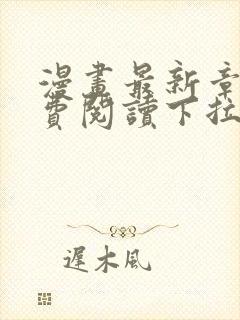 漫畫最新章
費閱讀下拉
遲木風